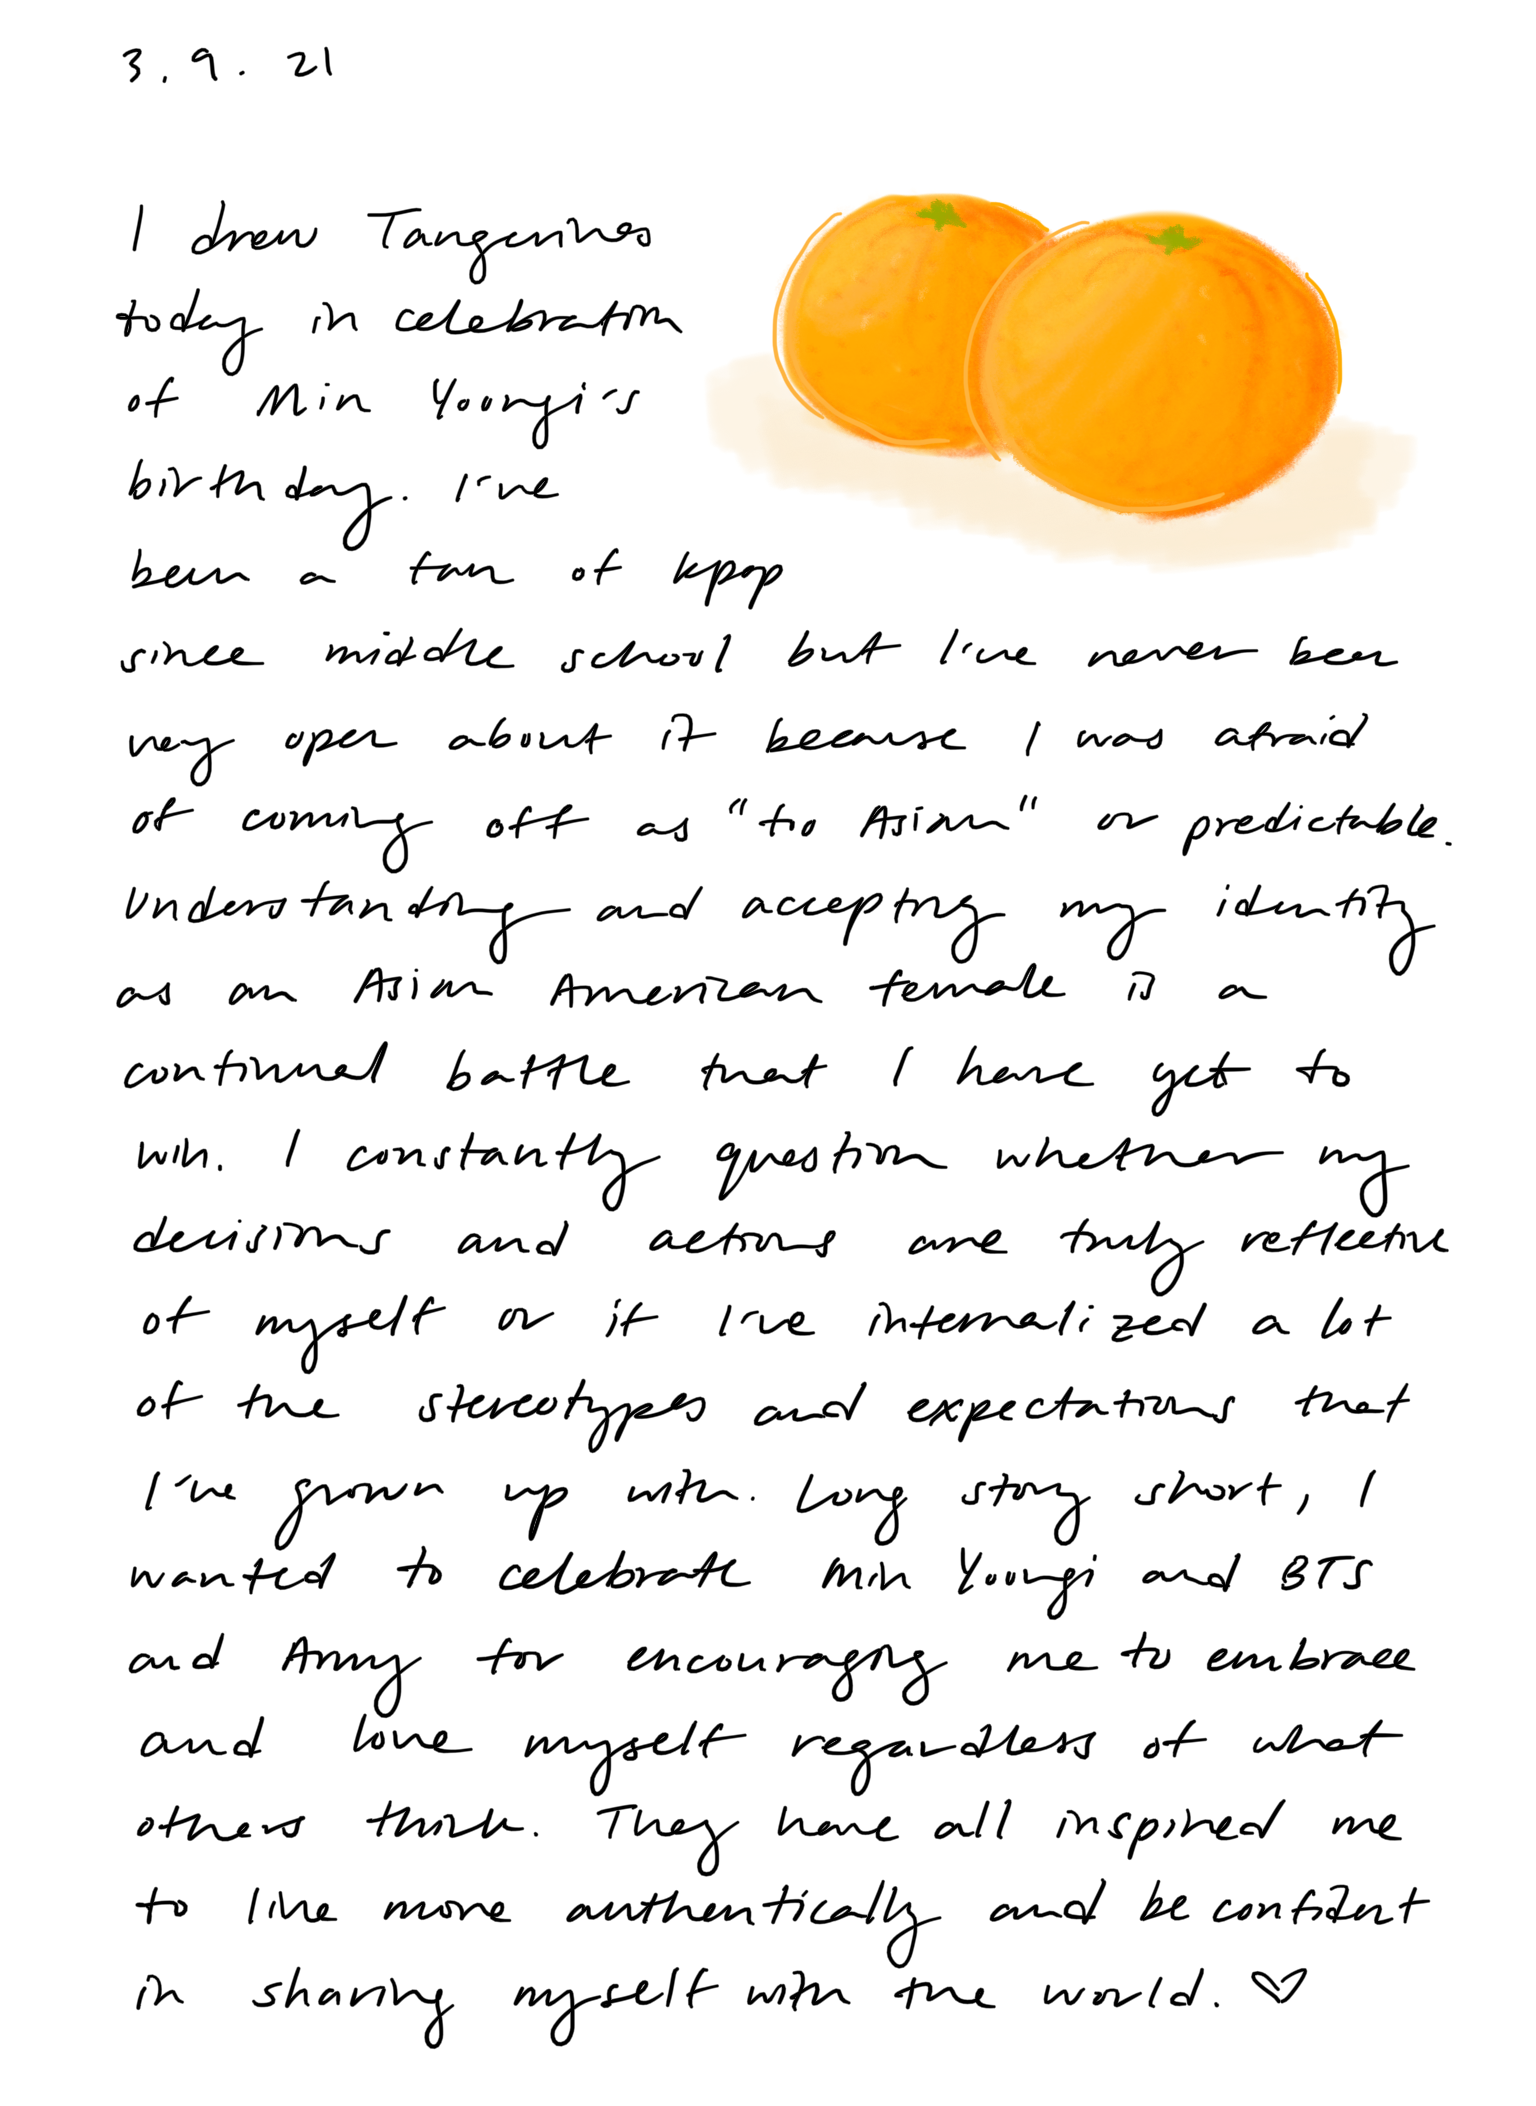 3.9.21
I drew Tangerines
today in celebration
of Min Yoongi's
birthday. I've
been a fan of kpop
since middle school but I've never been
very open about it because I was afraid
of coming off as "too Asian" or predictable.
Understanding and accepting my identity
as an Asian American female is a
continual battle that I have yet to
win. I constantly question whether my
decisions and actions are truly reflective
of myself or if I've internalized a lot
of the stereotypes and expectations that
I've grown up with. Long story short, I
wanted to celebrate Min Yoongi and BTS
and Army for encouraging me to embrace
and love myself regardless of what
others think. They have all inspired me
to live more authentically and be confident
in sharing myself with the world. ♡